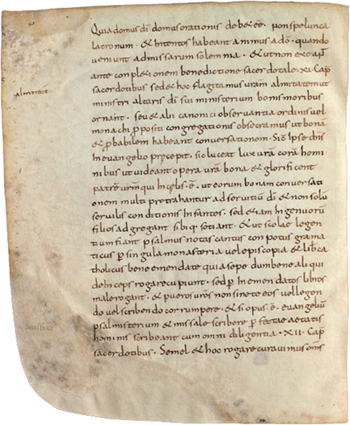 Quia domus di domus orationis deb& eē. non spelunca
latronum. & intentos habeant animus ad dm̄. quando
veniunt ad missarum solemnia. & ut non exeant
ante conpletionem benedictione sacerdotale. XI Cap
almitate
sacerdotibus sed & hoc flagitamus uram almitatem ut
ministri altaris di sui ministerium bonis moribus
ornant. seu & alii canonici observantia ordines vel
monachi ppositi congregationis obsecramus ut bona
& pbabilem habeant conversationem. Sic ipse dns
in evangelio precepit. sic luceat lux vrā coram homi
nibus ut videant opera vrā bona & glorificent
patrē vrm̄ qui in celis ē. ut eorum bonam conversati
onem multi protrahantur ad servitiū di & non solū
servilis conditionis infantes. sed etiam ingenuorū
filios adgregant sibiq. sotiant. & ut scolae legen
tium fiant psalmus notas cantus conpotus grama
ticus p singula monasteria vel episcopia & lib ca
tholicus bene emendate quia sepe dum bene aliqui
rogare cupiunt. sed p inemendatos libros
male rogant. & pueros vros non sinete eos vel legen
do vel scribendo corrumpere. & si opus ē. evangeliū
psalmisterum & missale scribere pfectae aetatis
homines scribeant cum omni diligentia. XII. Cap
sacerdotibus. Semel & hoc rogare curavimus omīs